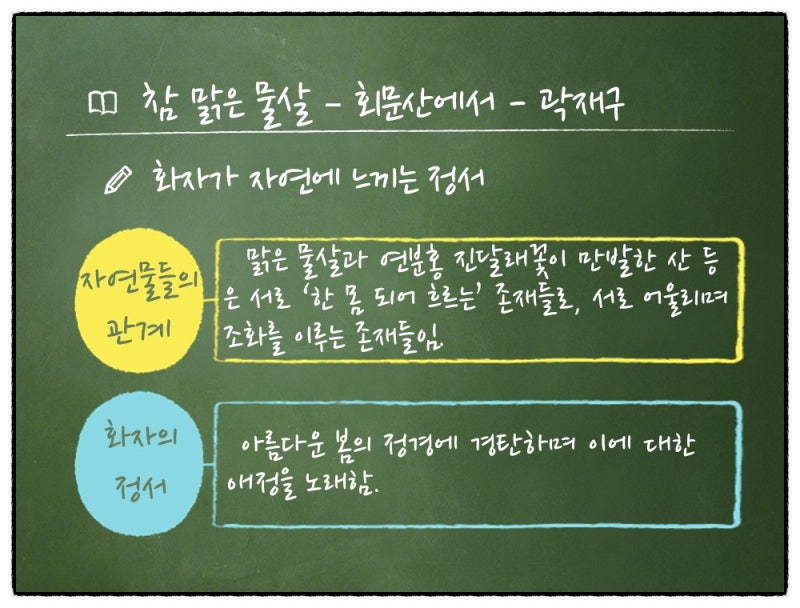 참 맑은 물살 - 회문산에서 - 곽재구
화자가 자연에 느끼는 정서
자연물들의
관계
맑은 물살과 연분홍 진달래꽃이 만발한 산 등
은 서로 ‘한 몸 되어 흐르는’ 존재들로, 서로 어울리며
조화를 이루는 존재들임.
화자의
정서
아름다운 봄의 정경에 경탄하며 이에 대한
애정을 노래함.